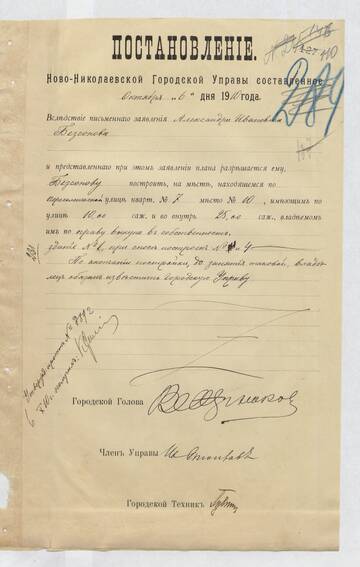 ПОСТАНОВЛЕНІЕ,
Ново-Николаевской Городской Управы составленное
Октября „6" дня 1910 года.
Вслѣдствіе письменнаго заявленія Александра Иванов.
Безсонова
и представленнаго при этомъ заявленіи плана разрѣшается ему,
Безсонову построить, на мѣстѣ, находящемся по
улицѣ кварт. № 7 мѣсто № 10, имѣющимъ по
улицѣ 10,00 саж. и во внутрь 25,00 саж., владѣемомъ
имъ по праву выкупа въ собственность,
зданіе № 1, при сносѣ построекъ № 4
По окончаніи постройки, до занятія таковой, владѣ-
лецъ обязанъ извѣстить городскую Управу
Городской Голова
Членъ Управы
Городской Техникъ
231